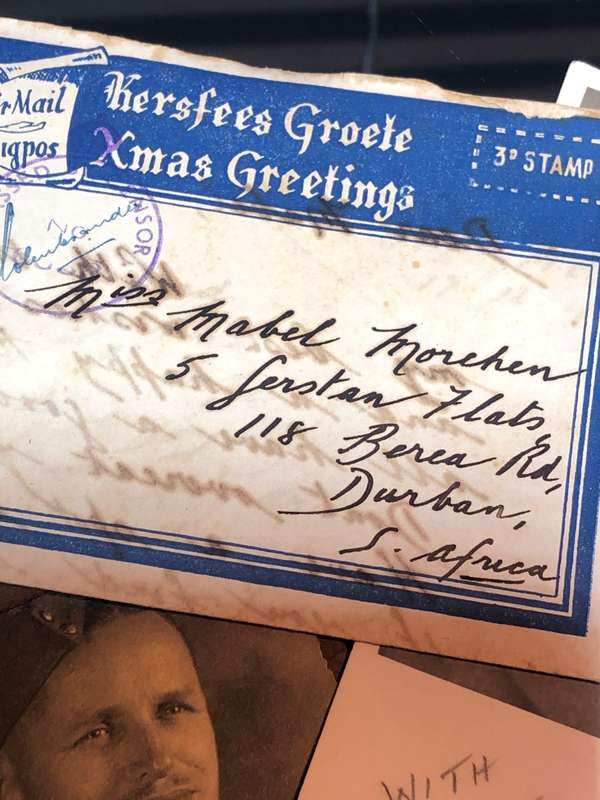 r Mail
igpos
Kersfees Groete
Xmas Greetings
3ᴰ STAMP
SOR
Miss Mabel Morchen
5 Gerstan Flats,
118 Berea Rd,
Durban,
S. Africa
WITH